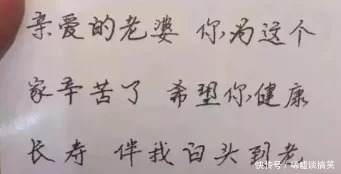 亲爱的老婆 你为这个
家辛苦了 希望你健康
长寿 伴我白头到老
快传号/嘻嘘谈搞笑